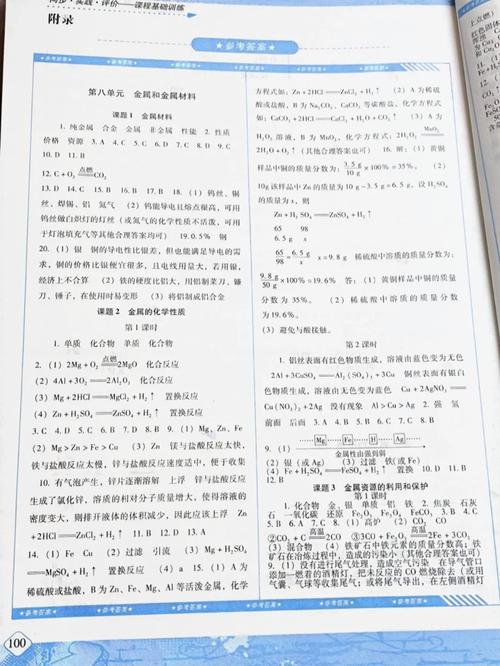 同步·实践·评价——课程基础训练
附录
参考答案
第八单元 金属和金属材料
课题1 金属材料
1. 纯金属 合金 金属 非金属 性能 2. 性质
价格 资源 3. A 4. C 5. D 6. C 7. D 8. C 9. C
10. D 11. B
12. C+O₂ 点燃 CO₂
13. D 14. C 15. B 16. B 17. B 18. (1) 钨丝、铜
丝、焊锡、铝 氮气 (2) 钨能导电且熔点很高,可用
钨丝做白炽灯的灯丝(或氮气的化学性质不活泼,可用
于灯泡填充气等其他合理答案也可) 19. 0.5% 钢
20. (1) 银 铜的导电性比银差,但也能满足导电的需
求,铜的价格比银便宜很多,且电线用量大,若用银,
经济上不合算 (2) 铁的硬度比铝大,用铝制菜刀、镰
刀、锤子,在使用时易变形 (3) 将铝制成铝合金
课题2 金属的化学性质
第1课时
1. 单质 化合物 单质 化合物
2. (1) 2Mg+O₂ 点燃 2MgO 化合反应
(2) 4Al+3O₂══2Al₂O₃ 化合反应
(3) Mg+2HCl══MgCl₂+H₂↑ 置换反应
(4) Zn+H₂SO₄══ZnSO₄+H₂↑ 置换反应
3. C 4. D 5. C 6. B 7. D 8. B 9. (1) Mg、Zn、Fe
(2) Mg>Zn>Fe>Cu (3) Zn 镁与盐酸反应太快、
铁与盐酸反应太慢,锌与盐酸反应速度适中,便于收集
10. 有气泡产生,锌片逐渐溶解 上浮 锌与盐酸反应
生成了氯化锌,溶质的相对分子质量增大,使得溶液的
密度变大,则排开液体的体积减小,因此应该上浮 Zn
+2HCl══ZnCl₂+H₂↑ 11. B 12. D 13. A
14. (1) Fe Cu (2) 过滤 引流 (3) Mg+H₂SO₄
══MgSO₄+H₂↑ (4) a 15. (1) A 为
稀硫酸或盐酸,B 为 Zn、Fe、Mg、Al 等活泼金属,化学
方程式如:Zn+2HCl══ZnCl₂+H₂↑ (2) A 为稀
硫酸或盐酸,B 为 Na₂CO₃、CaCO₃ 等碳酸盐,化学方程
式如:CaCO₃+2HCl══CaCl₂+H₂O+CO₂↑ (3) A 为
H₂O₂ 溶液,B 为 MnO₂,化学方程式:2H₂O₂ MnO₂
2H₂O+O₂↑(其他合理答案也可) 16. 解:(1) 黄铜
样品中铜的质量分数为:3.5 g/10 g×100%=35%。(2)
10g 该样品中 Zn 的质量为 10 g-3.5 g=6.5 g,设 H₂SO₄
的质量为 x,则
Zn+H₂SO₄══ZnSO₄+H₂↑
65 98
6.5 g x
65/98=6.5 g/x x=9.8 g 稀硫酸中溶质的质量分数为:
9.8 g/50 g×100%=19.6% 答:(1) 黄铜样品中铜的质量
分数为 35%。(2) 稀硫酸中溶质的质量分数为
19.6%。
(3) 避免与酸接触。
第2课时
1. 铝丝表面有红色物质生成,溶液由蓝色变为无色
2Al+3CuSO₄══Al₂(SO₄)₃+3Cu 铜丝表面有银白
色物质生成,溶液由无色变为蓝色 Cu+2AgNO₃══
Cu(NO₃)₂+2Ag 没有现象 Al>Cu>Ag 2. 强 氢
前面 后面 3. A 4. D 5. B 6. A 7. C 8. B
9. (1) Mg Fe H Ag
金属性由强到弱
(2) 银(或 Ag) (3) 过滤 铁(或 Fe)
(4) Fe+H₂SO₄══FeSO₄+H₂↑ 置换反应 10. D
11. B 12. B
课题3 金属资源的利用和保护
第1课时
1. 化合物 金、银 单质 铝 铁 2. 焦炭 石灰
石 一氧化碳 还原 Fe₂O₃ Fe₂O₃ Fe₃O₄ 3. C 4. A
5. B 6. A 7. C 8. B 9. (1) 高炉 (2) CO₂ CO
②CO₂+C 高温 2CO ③3CO+Fe₂O₃ 高温 2Fe+3CO₂
(3) 混合物 (4) 铁矿石中铁元素的质量分数高;铁
矿石在冶炼过程中,造成的污染小(其他合理答案也可)
9. (1) 没有进行尾气处理,造成空气污染 在导气管口
添加一燃着的酒精灯,把未反应的 CO 燃烧除去(或用
气囊、气球等收集尾气;或将尾气导出,在左侧酒精灯
参考答案
100